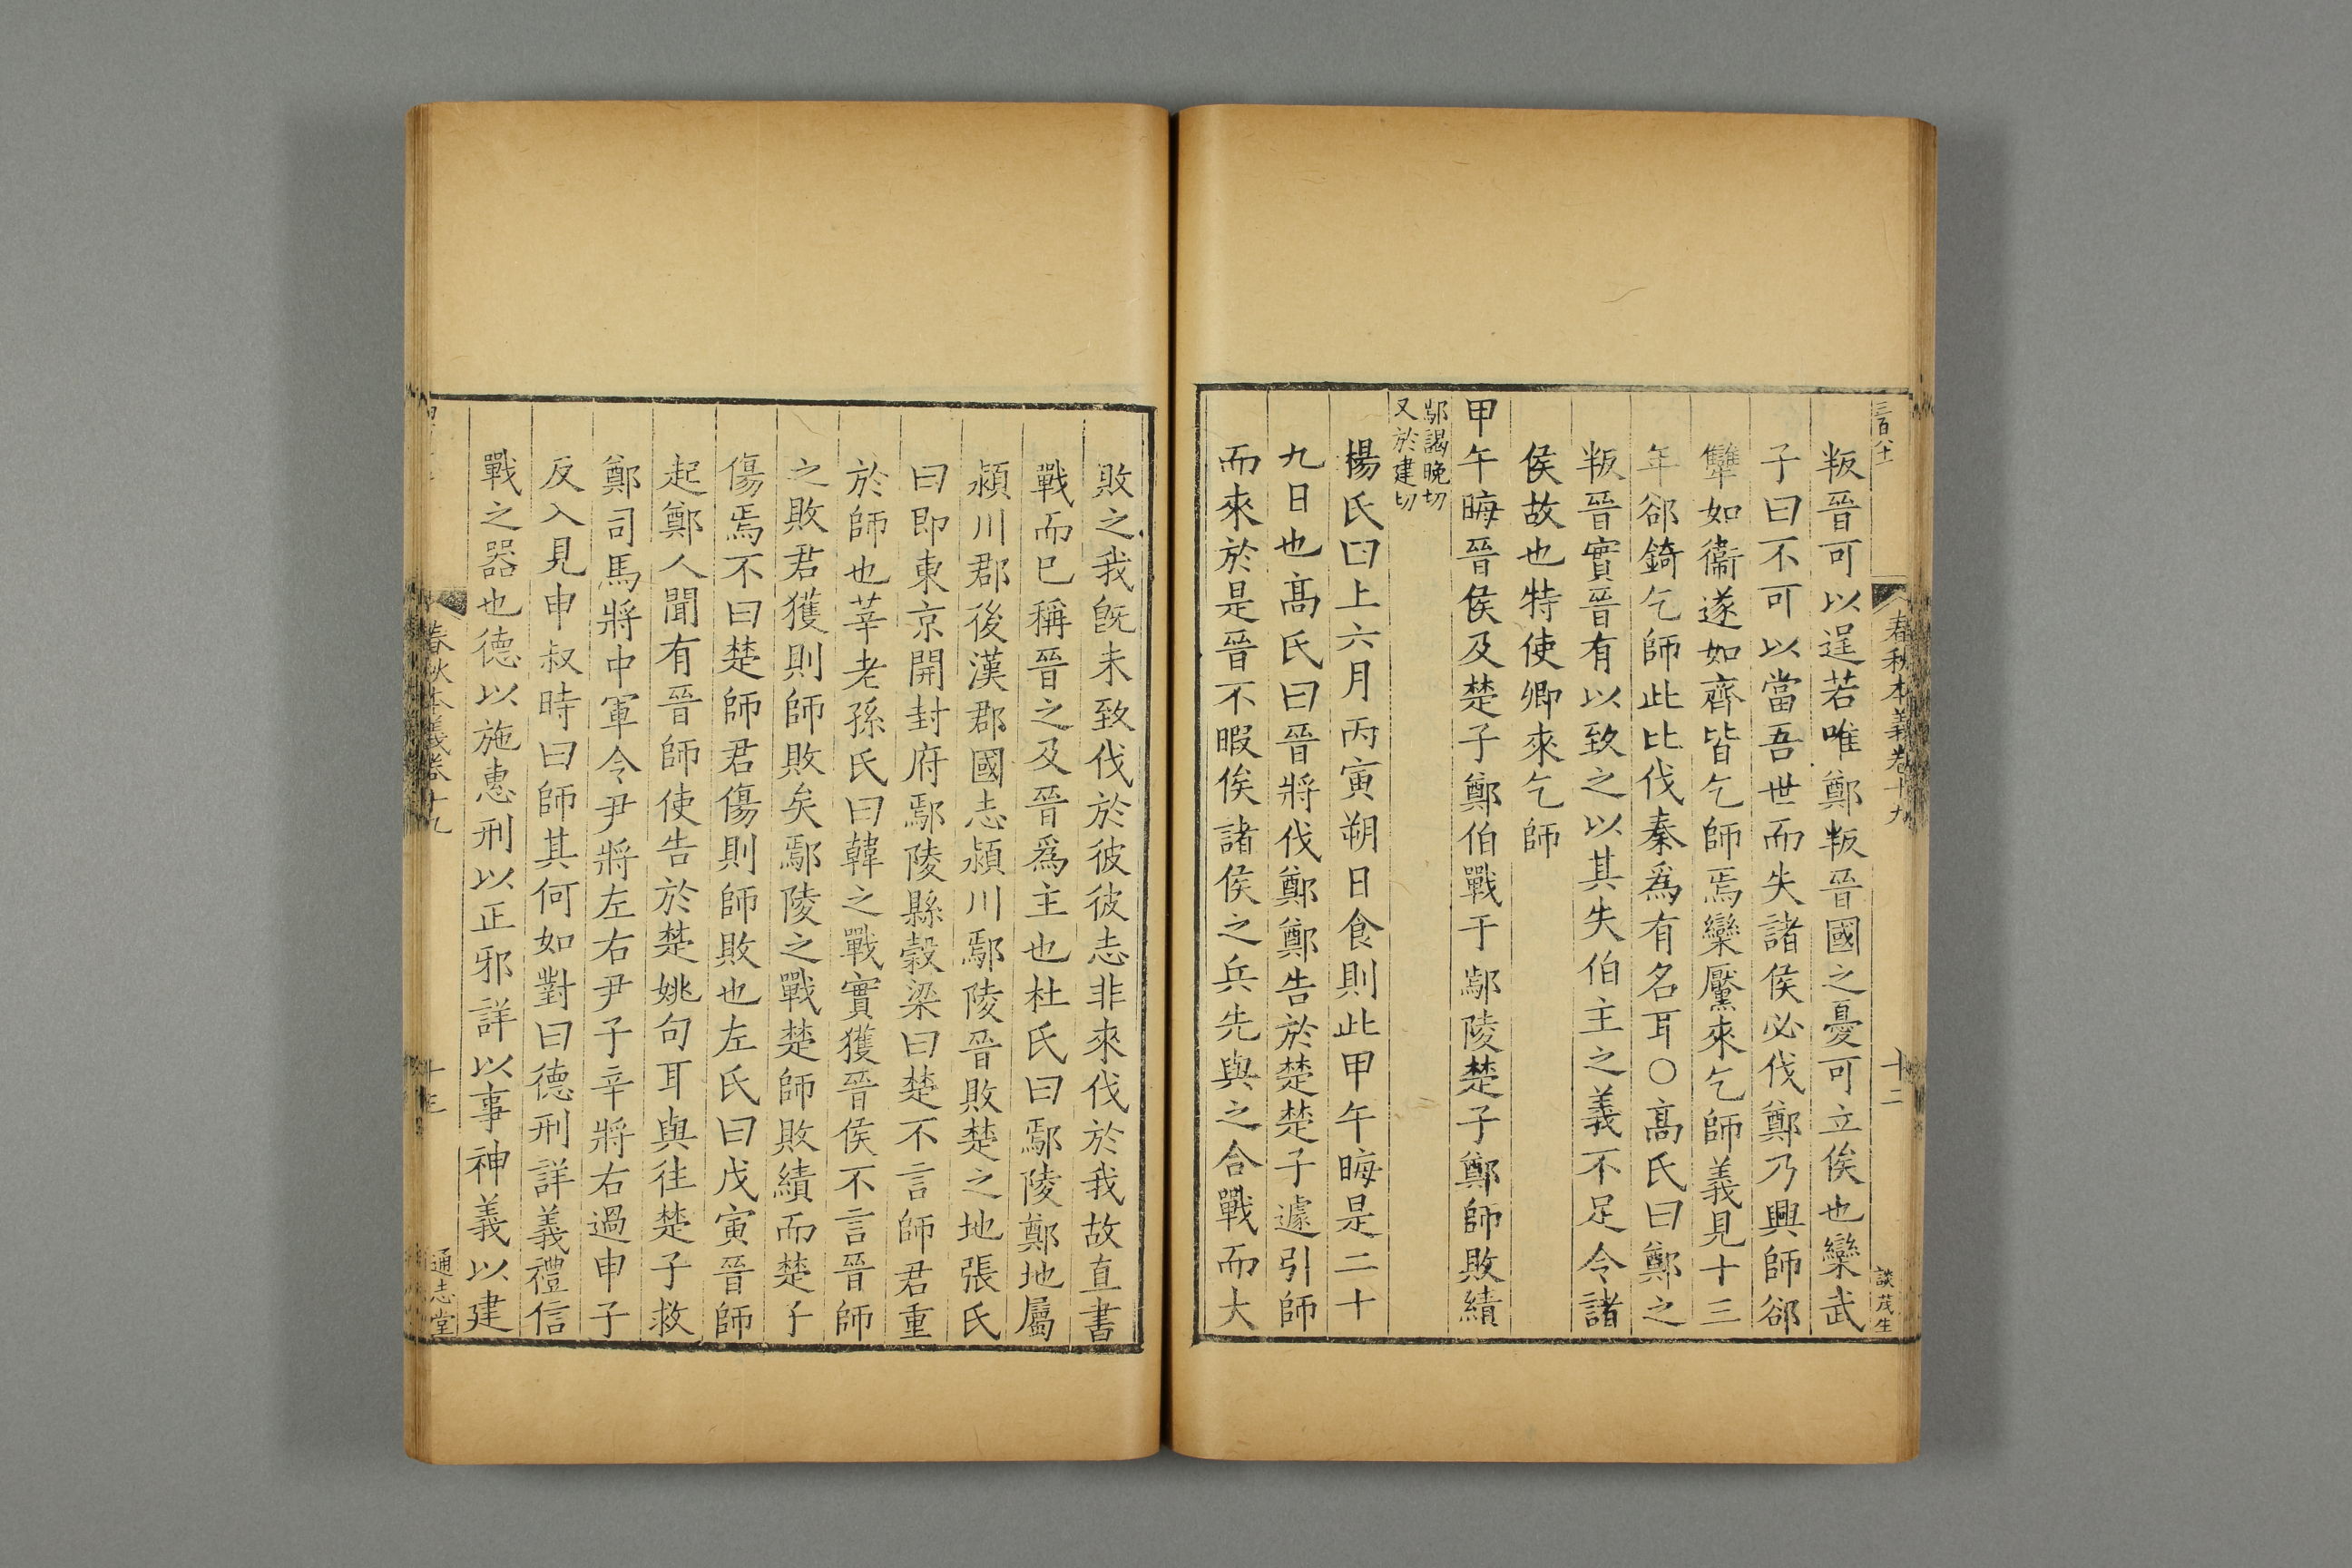 三百八十一
春秋本義卷十九
十二
談茂生
叛晉可以逞若唯鄭叛晉國之憂可立俟也欒武
子曰不可以當吾世而失諸侯必伐鄭乃興師郤
犫如衞遂如齊皆乞師焉欒黶來乞師義見十三
年郤錡乞師此比伐秦爲有名耳○髙氏曰鄭之
叛晉實晉有以致之以其失伯主之義不足令諸
侯故也特使卿來乞師
甲午晦晉侯及楚子鄭伯戰于鄢陵楚子鄭師敗績
鄢謁晚切
又於建切
楊氏曰上六月丙寅朔日食則此甲午晦是二十
九日也髙氏曰晉將伐鄭鄭告於楚楚子遽引師
而來於是晉不暇俟諸侯之兵先與之合戰而大
敗之我旣未致伐於彼彼志非來伐於我故直書
戰而已稱晉之及晉爲主也杜氏曰鄢陵鄭地屬
潁川郡後漢郡國志潁川鄢陵晉敗楚之地張氏
曰即東京開封府鄢陵縣穀梁曰楚不言師君重
於師也莘老孫氏曰韓之戰實獲晉侯不言晉師
之敗君獲則師敗矣鄢陵之戰楚師敗績而楚子
傷焉不曰楚師君傷則師敗也左氏曰戊寅晉師
起鄭人聞有晉師使告於楚姚句耳與往楚子救
鄭司馬將中軍令尹將左右尹子辛將右過申子
反入見申叔時曰師其何如對曰德刑詳義禮信
戰之器也德以施惠刑以正邪詳以事神義以建
春秋本義卷十九
十三
通志堂